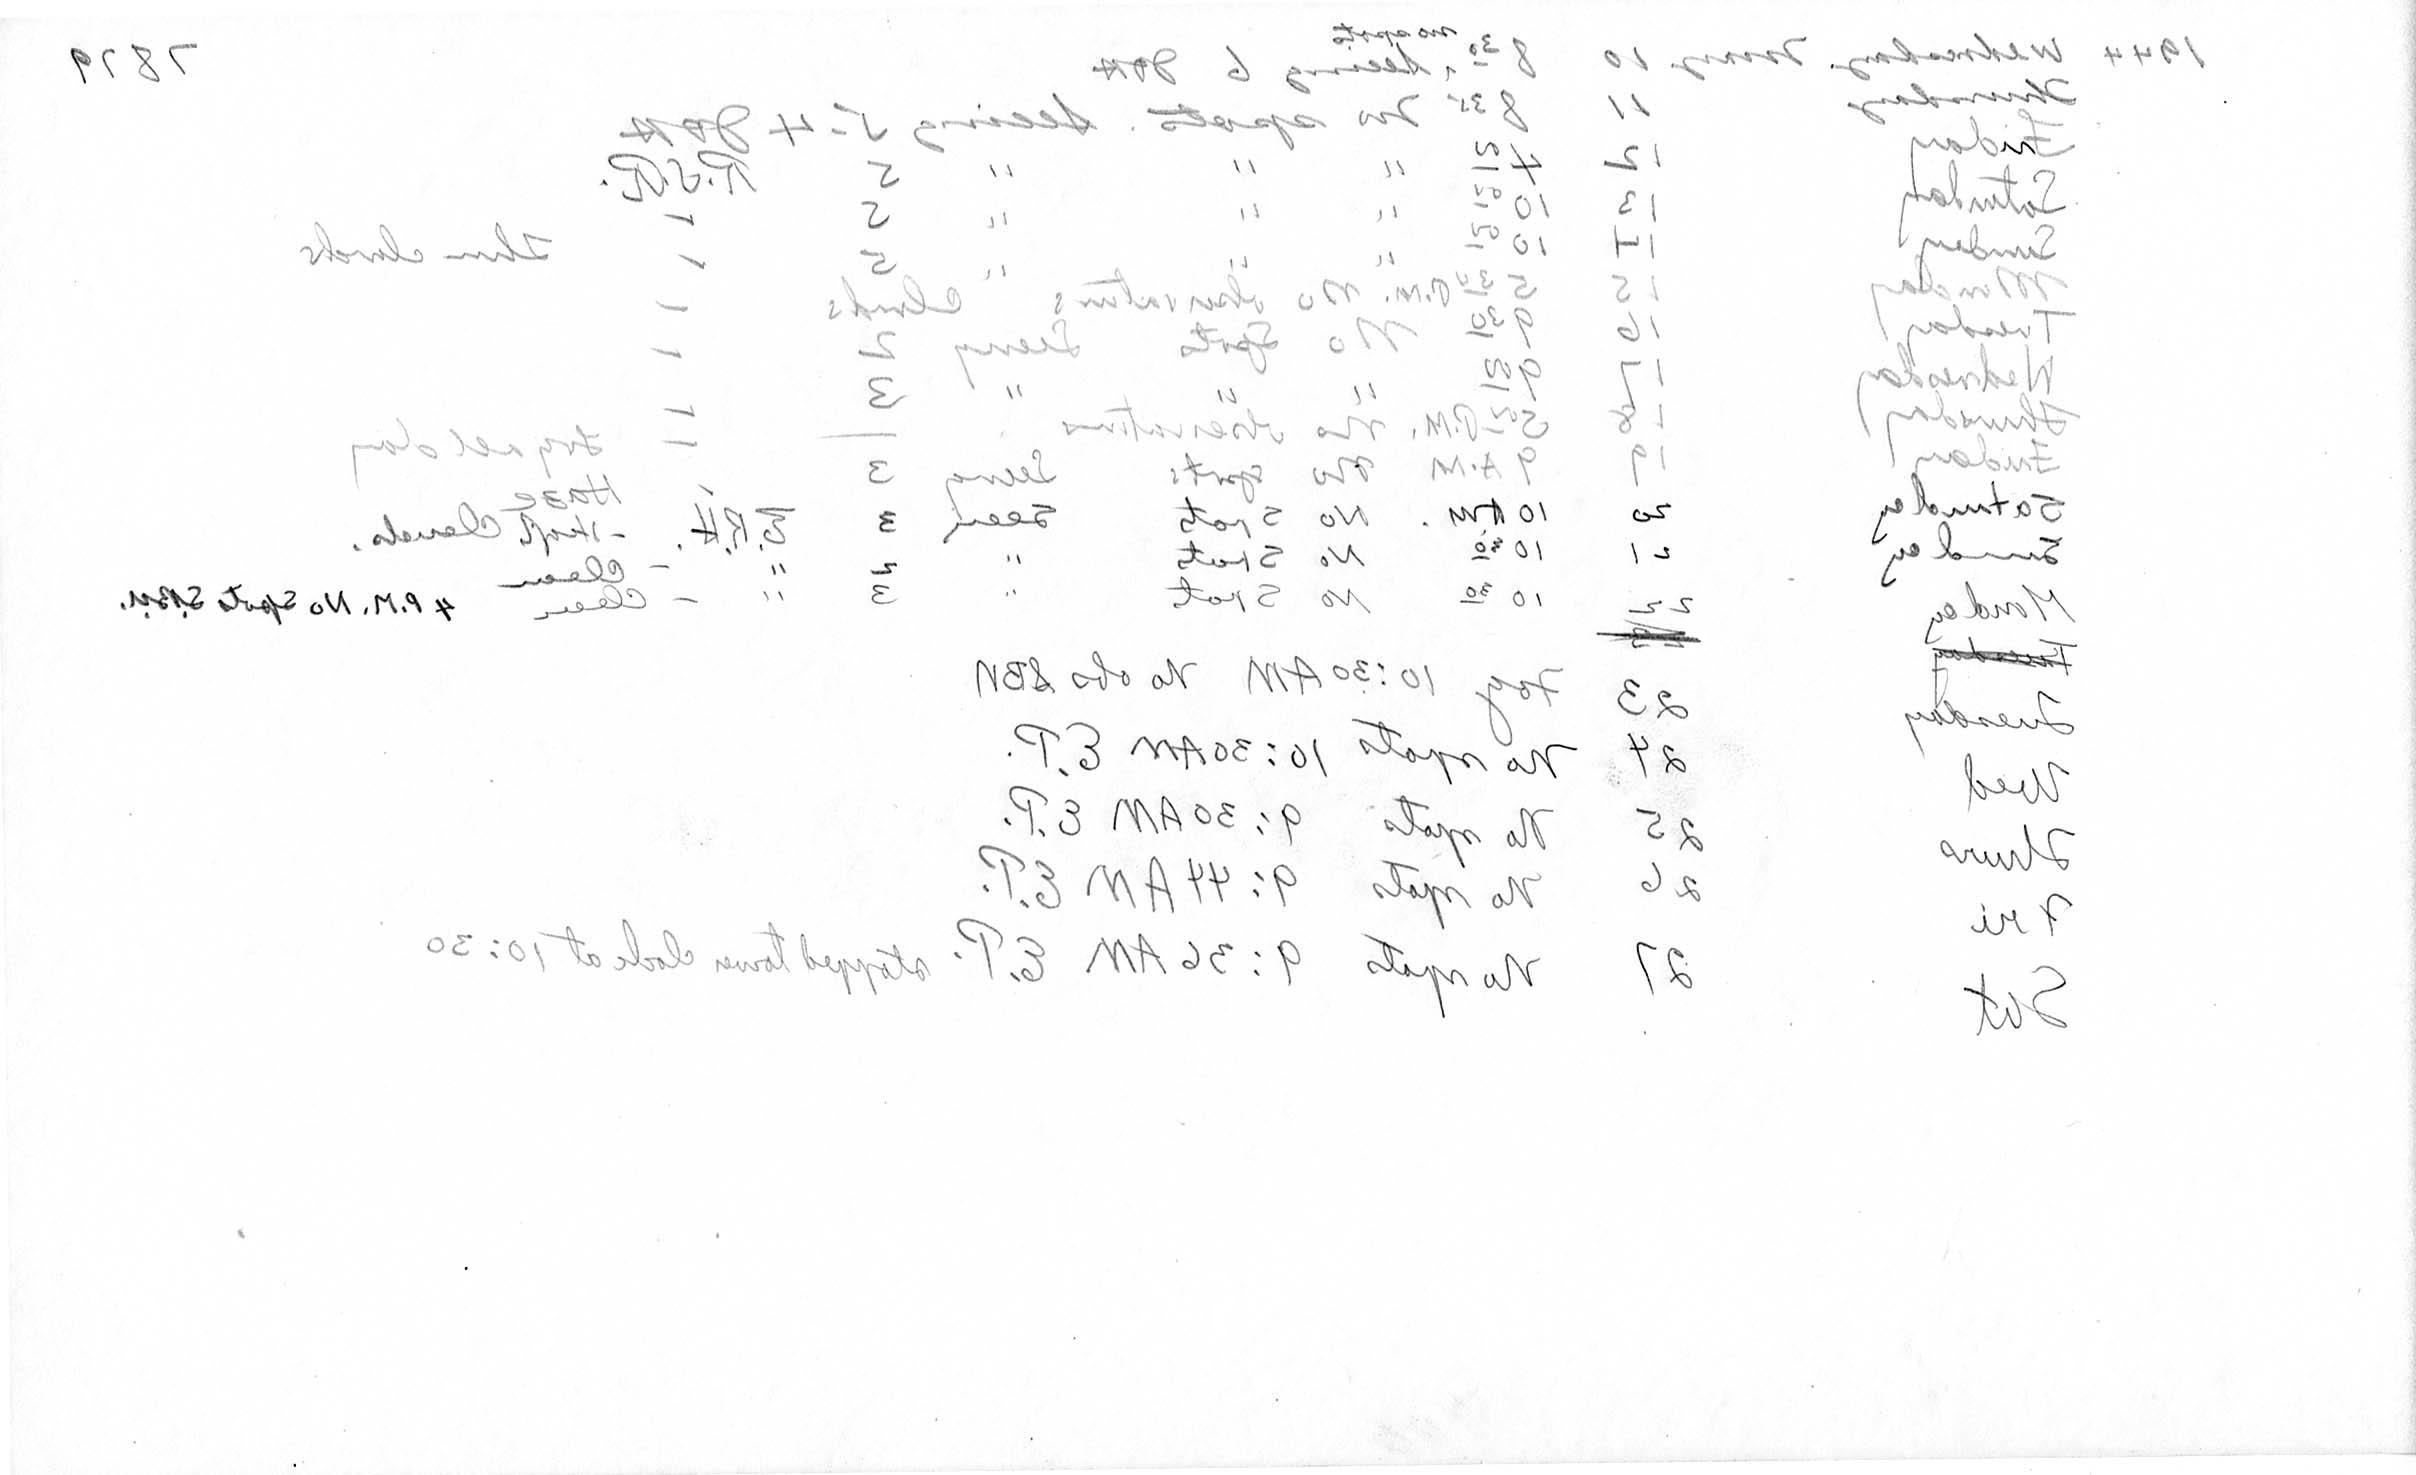 1944 Wednesday. May. 10 8 30, no spots seeing 6 JOH 7879
Thursday 11 8 35 No spots. Seeing 5-4 JOH
Friday 12 4 15 " " " 5 R.S.R.
Saturday 13 10 15 " " " 5 "
Sunday 14 10 15 " " " 5 " Thin clouds
Monday 15 5 30 P.M. No observations Clouds "
Tuesday 16 9 30 No Spots Seeing 2 "
Wednesday 17 9 15 " " " 3 "
Thursday 18 5 15 P.M. No observations — " Fog all day
Friday 19 9 A.M. No spots Seeing 3 " Haze
Saturday 20 10 AM. No Spots Seeing 3 E.R.H. - High Clouds.
Sunday 21 10 10 No Spots " 2 " - Clear
Monday 22 10 30 No Spots " 3 " - Clear 4 P.M. No Spots S.B.N.
Tuesday
Tuesday 23 Fog 10:30 AM No obs SBN
Wed 24 No spots 10:30AM E.P.
Thurs 25 No spots 9:30AM E.P.
Fri 26 No spots 9:44 AM E.P.
Sat 27 No spots 9:36 AM E.P. stopped tower clock at 10:30